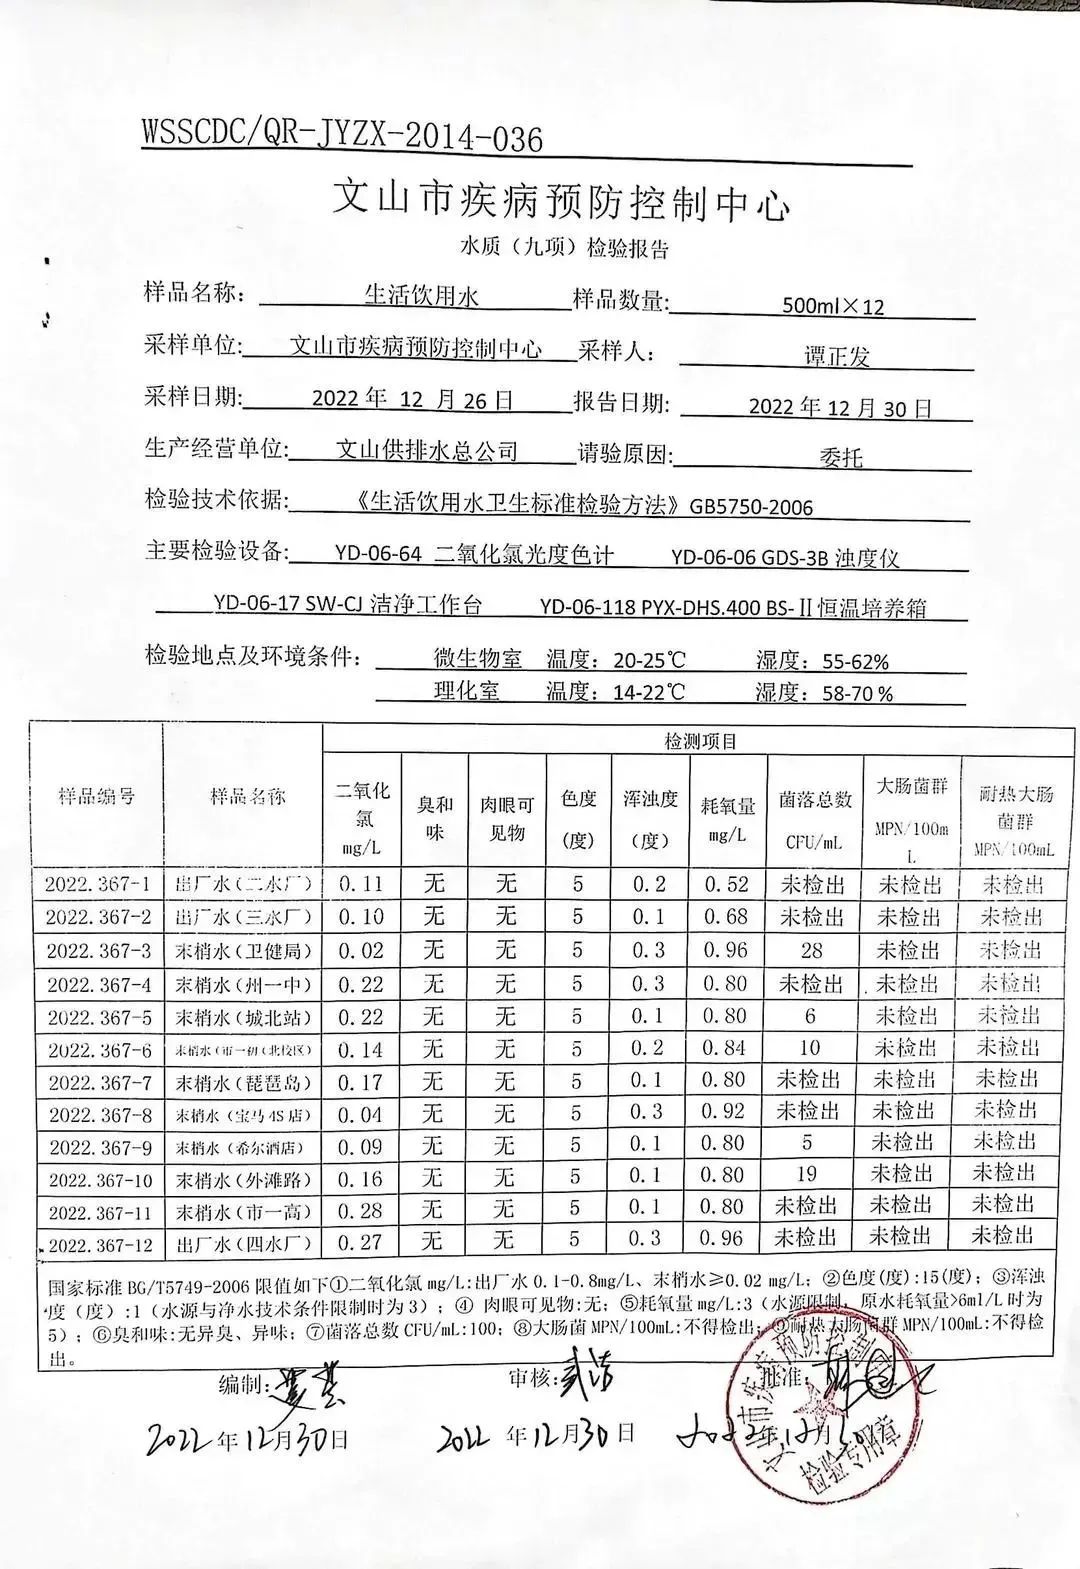 WSSCDC/QR-JYZX-2014-036
文山市疾病预防控制中心
水质（九项）检验报告
样品名称： 生活饮用水 样品数量: 500ml×12
采样单位: 文山市疾病预防控制中心 采样人： 谭正发
采样日期: 2022 年 12 月 26 日 报告日期: 2022 年 12 月 30 日
生产经营单位: 文山供排水总公司 请验原因: 委托
检验技术依据: 《生活饮用水卫生标准检验方法》GB5750-2006
主要检验设备: YD-06-64 二氧化氯光度色计 YD-06-06 GDS-3B 浊度仪
YD-06-17 SW-CJ 洁净工作台 YD-06-118 PYX-DHS.400 BS-Ⅱ恒温培养箱
检验地点及环境条件： 微生物室 温度：20-25℃ 湿度：55-62%
理化室 温度：14-22℃ 湿度：58-70 %
样品编号 样品名称 检测项目
二氧化氯 mg/L 臭和味 肉眼可见物 色度(度) 浑浊度（度） 耗氧量 mg/L 菌落总数 CFU/mL 大肠菌群 MPN/100mL 耐热大肠菌群 MPN/100mL
2022.367-1 出厂水（二水厂） 0.11 无 无 5 0.2 0.52 未检出 未检出 未检出
2022.367-2 出厂水（三水厂） 0.10 无 无 5 0.1 0.68 未检出 未检出 未检出
2022.367-3 末梢水（卫健局） 0.02 无 无 5 0.3 0.96 28 未检出 未检出
2022.367-4 末梢水（州一中） 0.22 无 无 5 0.3 0.80 未检出 未检出 未检出
2022.367-5 末梢水（城北站） 0.22 无 无 5 0.1 0.80 6 未检出 未检出
2022.367-6 末梢水（市一初（北校区） 0.14 无 无 5 0.2 0.84 10 未检出 未检出
2022.367-7 末梢水（琵琶岛） 0.17 无 无 5 0.1 0.80 未检出 未检出 未检出
2022.367-8 末梢水（宝马4S店） 0.04 无 无 5 0.3 0.92 未检出 未检出 未检出
2022.367-9 末梢水（希尔酒店） 0.09 无 无 5 0.1 0.80 5 未检出 未检出
2022.367-10 末梢水（外滩路） 0.16 无 无 5 0.1 0.80 19 未检出 未检出
2022.367-11 末梢水（市一高） 0.28 无 无 5 0.1 0.80 未检出 未检出 未检出
2022.367-12 出厂水（四水厂） 0.27 无 无 5 0.3 0.96 未检出 未检出 未检出
国家标准 BG/T5749-2006 限值如下①二氧化氯 mg/L:出厂水 0.1-0.8mg/L、末梢水≥0.02 mg/L；②色度(度):15(度)；③浑浊
度（度）:1（水源与净水技术条件限制时为 3）；④ 肉眼可见物:无；⑤耗氧量 mg/L:3（水源限制，原水耗氧量>6ml/L 时为
5）；⑥臭和味:无异臭、异味；⑦菌落总数 CFU/mL:100；⑧大肠菌 MPN/100mL:不得检出；⑨耐热大肠菌群 MPN/100mL:不得检
出。
编制: 审核: 批准:
2022 年 12 月 30 日 2022 年 12 月 30 日 2022 年 12 月 30
检验专用章